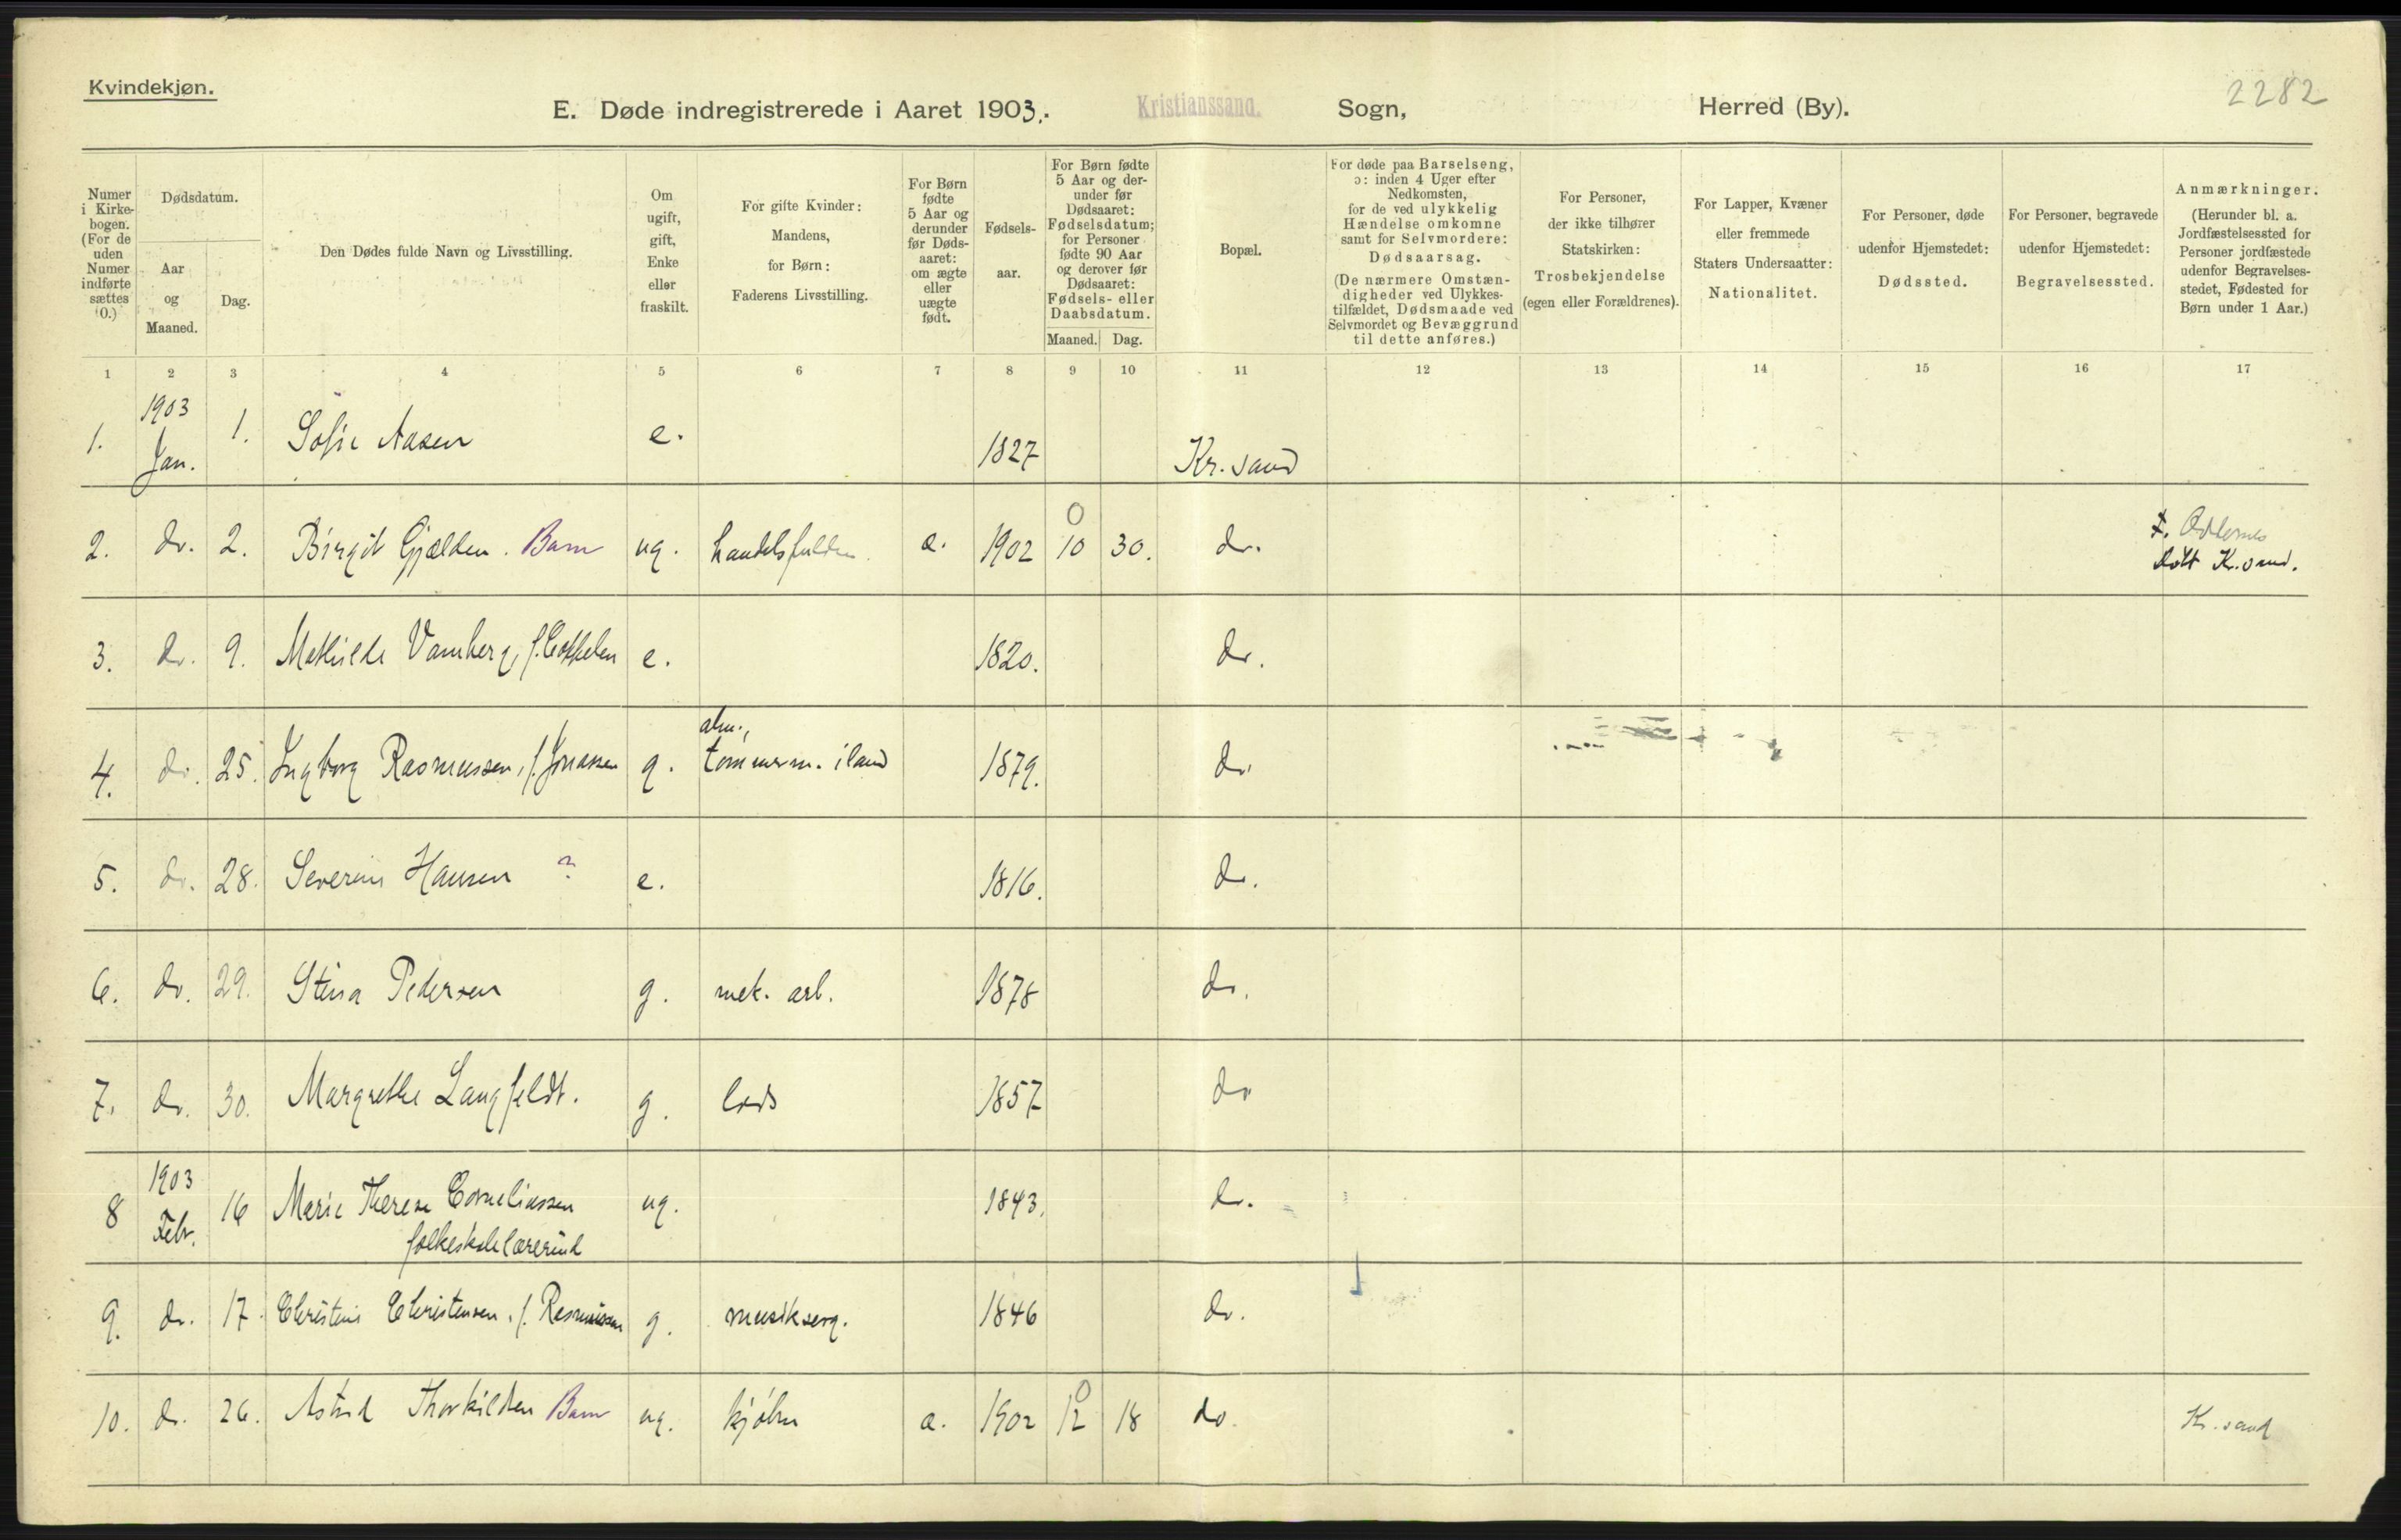 Kvindekjøn.
E. Døde indregistrerede i Aaret 1903. Kristianssand. Sogn, Herred (By).
2282
Numer i Kirke-bogen. (For de uden Numer indførte sættes 0.)
Dødsdatum.
Aar og Maaned.
Dag.
Den Dødes fulde Navn og Livsstilling.
Om ugift, gift, Enke eller fraskilt.
For gifte Kvinder: Mandens, for Børn: Faderens Livsstilling.
For Børn fødte 5 Aar og derunder før Døds-aaret: om ægte eller uægte født.
Fødsels-aar.
For Børn fødte 5 Aar og der-under før Dødsaaret: Fødselsdatum; for Personer fødte 90 Aar og derover før Dødsaaret: Fødsels- eller Daabsdatum.
Maaned. Dag.
Bopæl.
For døde paa Barselseng, ɔ: inden 4 Uger efter Nedkomsten, for de ved ulykkelig Hændelse omkomne samt for Selvmordere: Dødsaarsag.
(De nærmere Omstæn-digheder ved Ulykkes-tilfældet, Dødsmaade ved Selvmordet og Bevæggrund til dette anføres.)
For Personer, der ikke tilhører Statskirken: Trosbekjendelse (egen eller Forældrenes).
For Lapper, Kvæner eller fremmede Staters Undersaatter: Nationalitet.
For Personer, døde udenfor Hjemstedet: Dødssted.
For Personer, begravede udenfor Hjemstedet: Begravelsessted.
Anmærkninger. (Herunder bl. a. Jordfæstelsessted for Personer jordfæstede udenfor Begravelses-stedet, Fødested for Børn under 1 Aar.)
1 2 3 4 5 6 7 8 9 10 11 12 13 14 15 16 17
1. 1903 Jan. 1. Sofie Aasen e. 1827 Kr. sand
2. do. 2. Birgit Gjælden. Barn ug. 1902 0 10 30. do.
Kr. sand.
3. do. 9. Mathilde e. 1820. do.
4. do. 25. Ingborg Rasmussen, f. Jonassen g. tømmerm. iland 1879. do
5. do. 28. Severin Hansen ? e. 1816. do.
6. do. 29. Stina Pedersen g. mek. arb. 1878 do.
7. do. 30. Margrethe Langfeldt. g. lods 1857 do
8 1903 Febr. 16 Marie Therese Corneliussen ug. 1843. do.
folkeskolelærerind
9. do. 17. Christine Christensen. f. Rasmussen g. 1846 do.
10. do. 26. Astrid Thorkildsen Barn ug. kjøbm 1902 0 12 18 do. Kr. sand